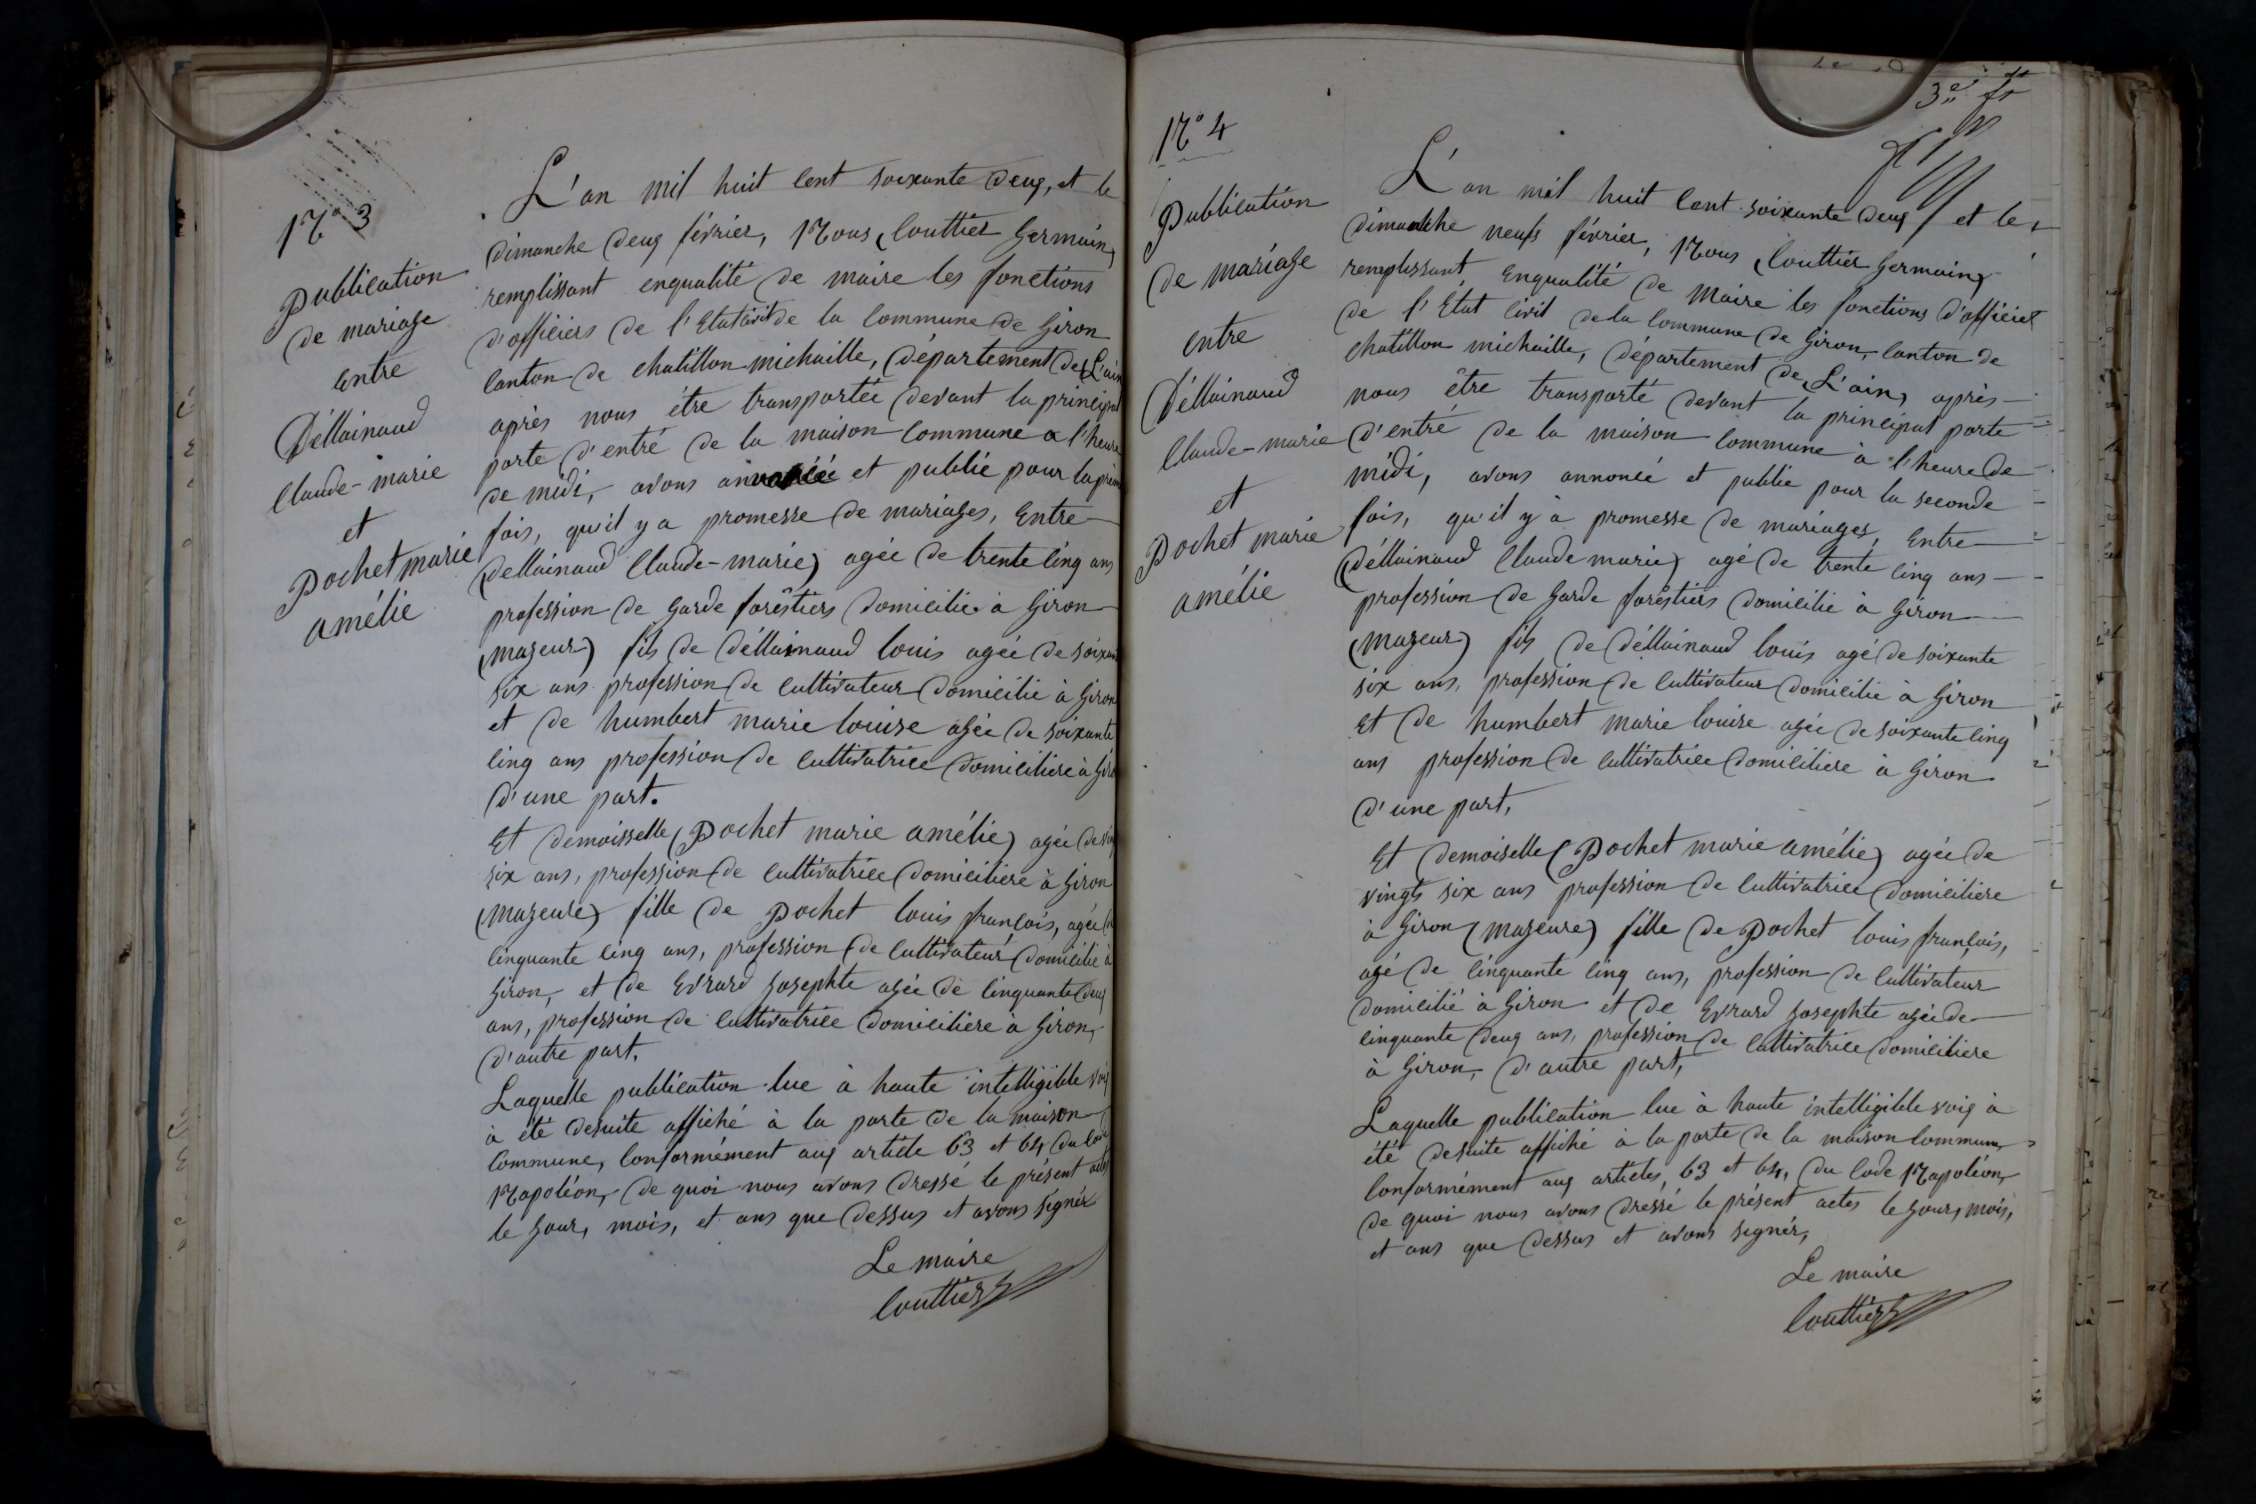 N° 3
Publication
de mariage
entre
Déllainaud
Claude-marie
et
Pochet marie
amélie
L'an mil huit cent soixante deux, et le
dimanche deux février, Nous, Couttier Germain,
remplissant enqualité de maire les fonctions
d'officiers de l'Etat civil de la commune de Giron
canton de chatillon michaille, département de L'ain
après nous être transportée devant la principal
porte d'entré de la maison commune a l'heure
de midi, avons annoncée et publié pour la prem
fois, qu'il y a promesse de mariages, Entre
(Dellainaud Claude-marie) agée de trente cinq ans
profession de Garde forêstiers domicilié à Giron
(majeur) fils de Déllainaud louis agée de soixan
six ans profession de cultivateur domicilié à Giron
et de humbert marie louise agée de soixante
cinq ans profession de cultivatrice domicilière à Giro
d'une part.
Et demoisselle (Pochet marie amélie) agée de
six ans, profession de cultivatrice domicilière à Giron
(majeure) fille de Pochet louis françois, agée
cinquante cinq ans, profession de cultivateur domicilié à
Giron, et de Evrard Josephte agée de cinquante deux
ans, profession de cultivatrice domicilière à Giron,
d'autre part.
Laquelle publication lue à haute intelligible voix
à été desuite affiché à la porte de la maison
commune, conformément aux article 63 et 64 du Code
Napoléon, de quoi nous avons dressé le présent actes
le jour, mois, et ans que dessus et avons signér
Le maire
Couttier
3e ft
N° 4
Publication
de mariage
entre
Déllainaud
Claude-marie
et
Pochet marie
amélie
L'an mil huit cent soixante deux et le
dimanche neufs février, Nous, Couttier Germain,
remplissant enqualité de Maire les fonctions d'officier
de l'Etat civil de la commune de Giron, canton de
chatillon michaille, département de L'ain, après
nous être transporté devant la principal porte
d'entré de la maison commune à l'heure de
midi, avons annoncé et publié pour la seconde
fois, qu'il y à promesse de mariages, Entre
(Déllainaud Claude marie) agé de trente cinq ans
profession de Garde forêstiers domicilié à Giron
(majeur) fils de Déllainaud louis agé de soixante
six ans, profession de cultivateur domicilié à Giron
Et de humbert marie louise agée de soixante cinq
ans profession de cultivatrice domicilière à Giron
d'une part,
Et demoiselle (Pochet marie amélie) agée de
vingts six ans profession de cultivatrice domicilière
à Giron (majeure) fille de Pochet louis françois,
agé de cinquante cinq ans, profession de cultivateur
domicilié à Giron et de Evrard Josephte agée de
cinquante deux ans, profession de cultivatrice domicilière
à Giron, d'autre part,
Laquelle publication lue à haute intelligible voix à
été desuite affiché à la porte de la maison commune,
conformément aux articles, 63 et 64, du Code Napoléon,
de quoi nous avons dressé le présent actes le jour, mois,
et ans que dessus et avons signér,
Le maire
Couttier